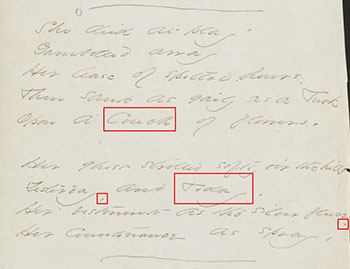 She died at play.
Gambolled away
Her lease of spotted hours,
Then sank as gaily as a Turk
Opon a Couch of flowers.
Her ghost strolled softly o'er the hill
Yesterday, and Today,
Her vestments as the silver fleece,
Her countenance as spray.